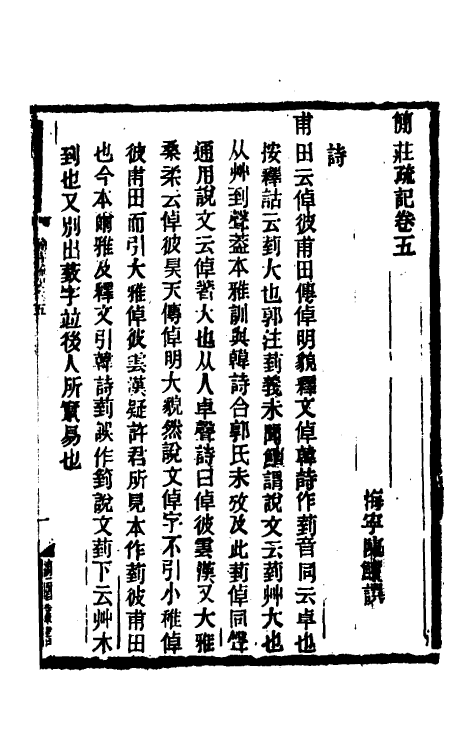 簡莊疏記卷五
海寧陳鱣譔
詩
甫田云倬彼甫田傳倬明貌釋文倬韓詩作菿音同云卓也
按釋詁云菿大也郭注菿義未聞鱣謂說文云菿艸大也
从艸到聲葢本雅訓與韓詩合郭氏未攷及此菿倬同聲
通用說文云倬箸大也从人卓聲詩曰倬彼雲漢又大雅
桑柔云倬彼昊天傳倬明大貌然說文倬字不引小稚倬
彼甫田而引大雅倬彼雲漢疑許君所見本作菿彼甫田
也今本爾雅及釋文引韓詩菿誤作箌說文菿下云艸木
到也又別出菿字竝後人所竄易也